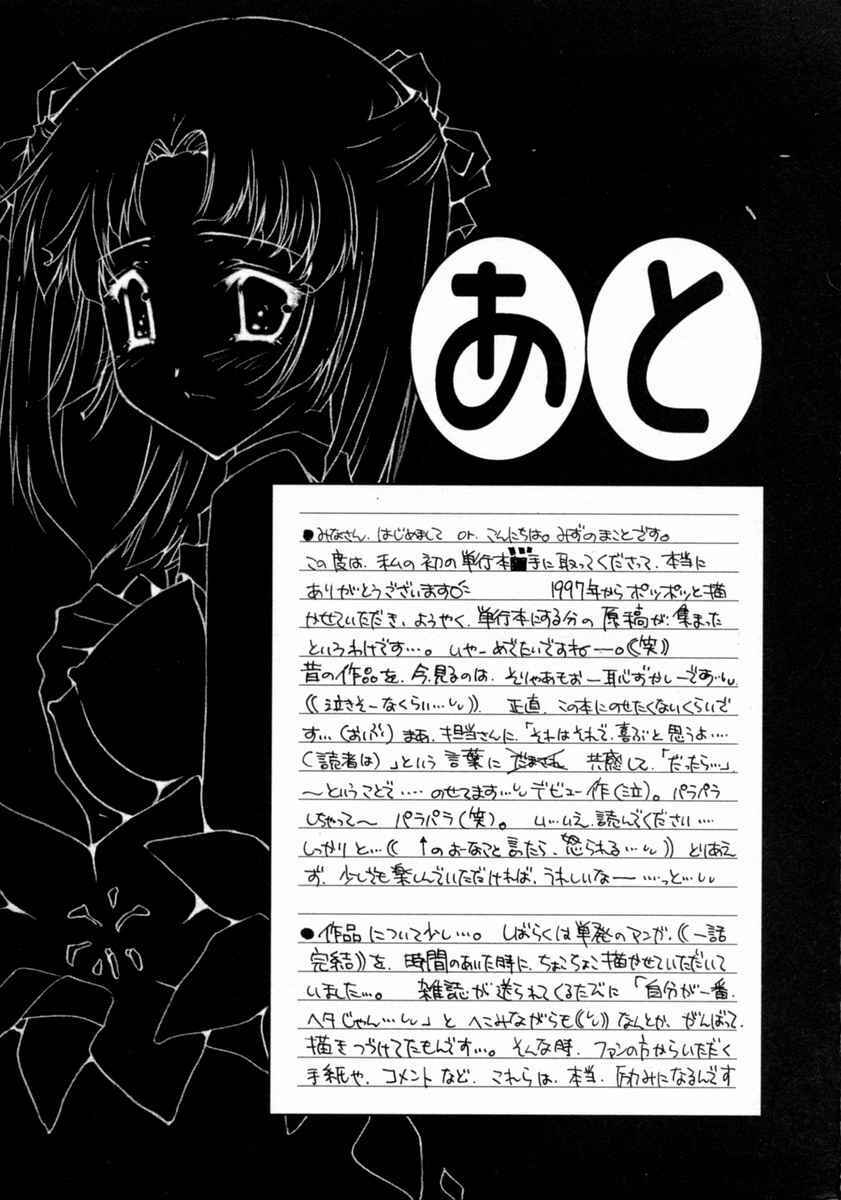 あと
●みなさん、はじめまして or. こんにちは。みずのまことです。
この度は、私の初の単行本手に取ってくださって、本当に
ありがとうございます 1997年からポツポツと描
かせていただき、ようやく、単行本にする分の原稿が、集まった
というわけです…。いやーめでたいですねー。((笑))
昔の作品を、今、見るのは、そりゃあもおー恥ずかしーです…
((泣きそーなくらい…)). 正直、この本にのせたくないくらいで
す…(おいぶ) まあ、担当さんに、「それはそれで、喜ぶと思うよ…
(読者は)」という言葉に 共感して、「だったら…」、
〜ということで…・のせてます… デビュー作(泣)。パラパラ
しちゃって〜 パラパラ(笑)。 い…いえ、読んでください…・
しっかりと…(( ↑のよーなこと言たら、怒られる…)) とりあえ
ず、少しでも楽しんでいただければ、うれしいなー…・っと…
●作品について少し…。しばらくは単発のマンガ、((一話
完結))を、時間のあいた時に、ちょこちょこ描かせていただいて
いました…。 雑誌が送られてくるたびに「自分が一番、
ヘタじゃん…」と へこみながらも なんとか、がんばって、
描きつづけてたもんです…。そんな時、ファンの方からいただく
手紙や、コメントなど、これらは、本当、励みになるんです